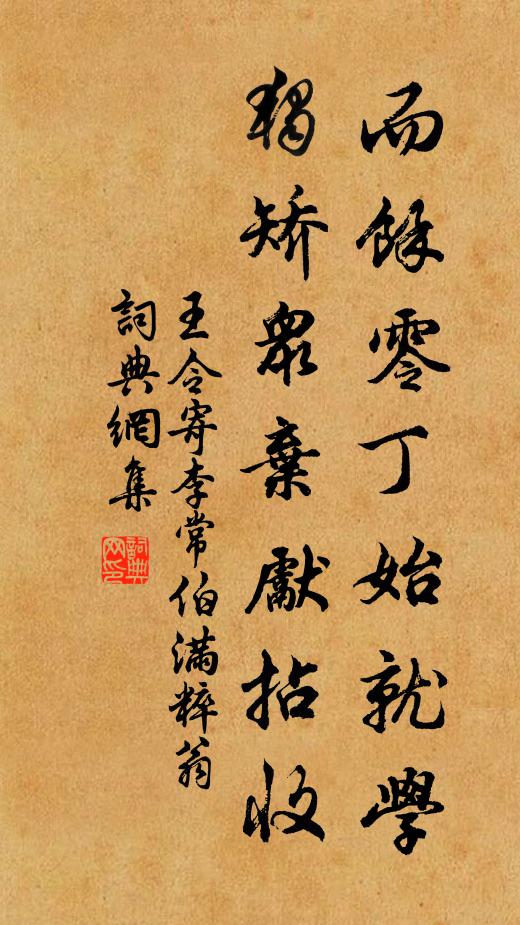 而餘零丁始就學
獨矯眾棄獻拈收
王令寄李常伯滿粹翁
詞典網集
詞典網印